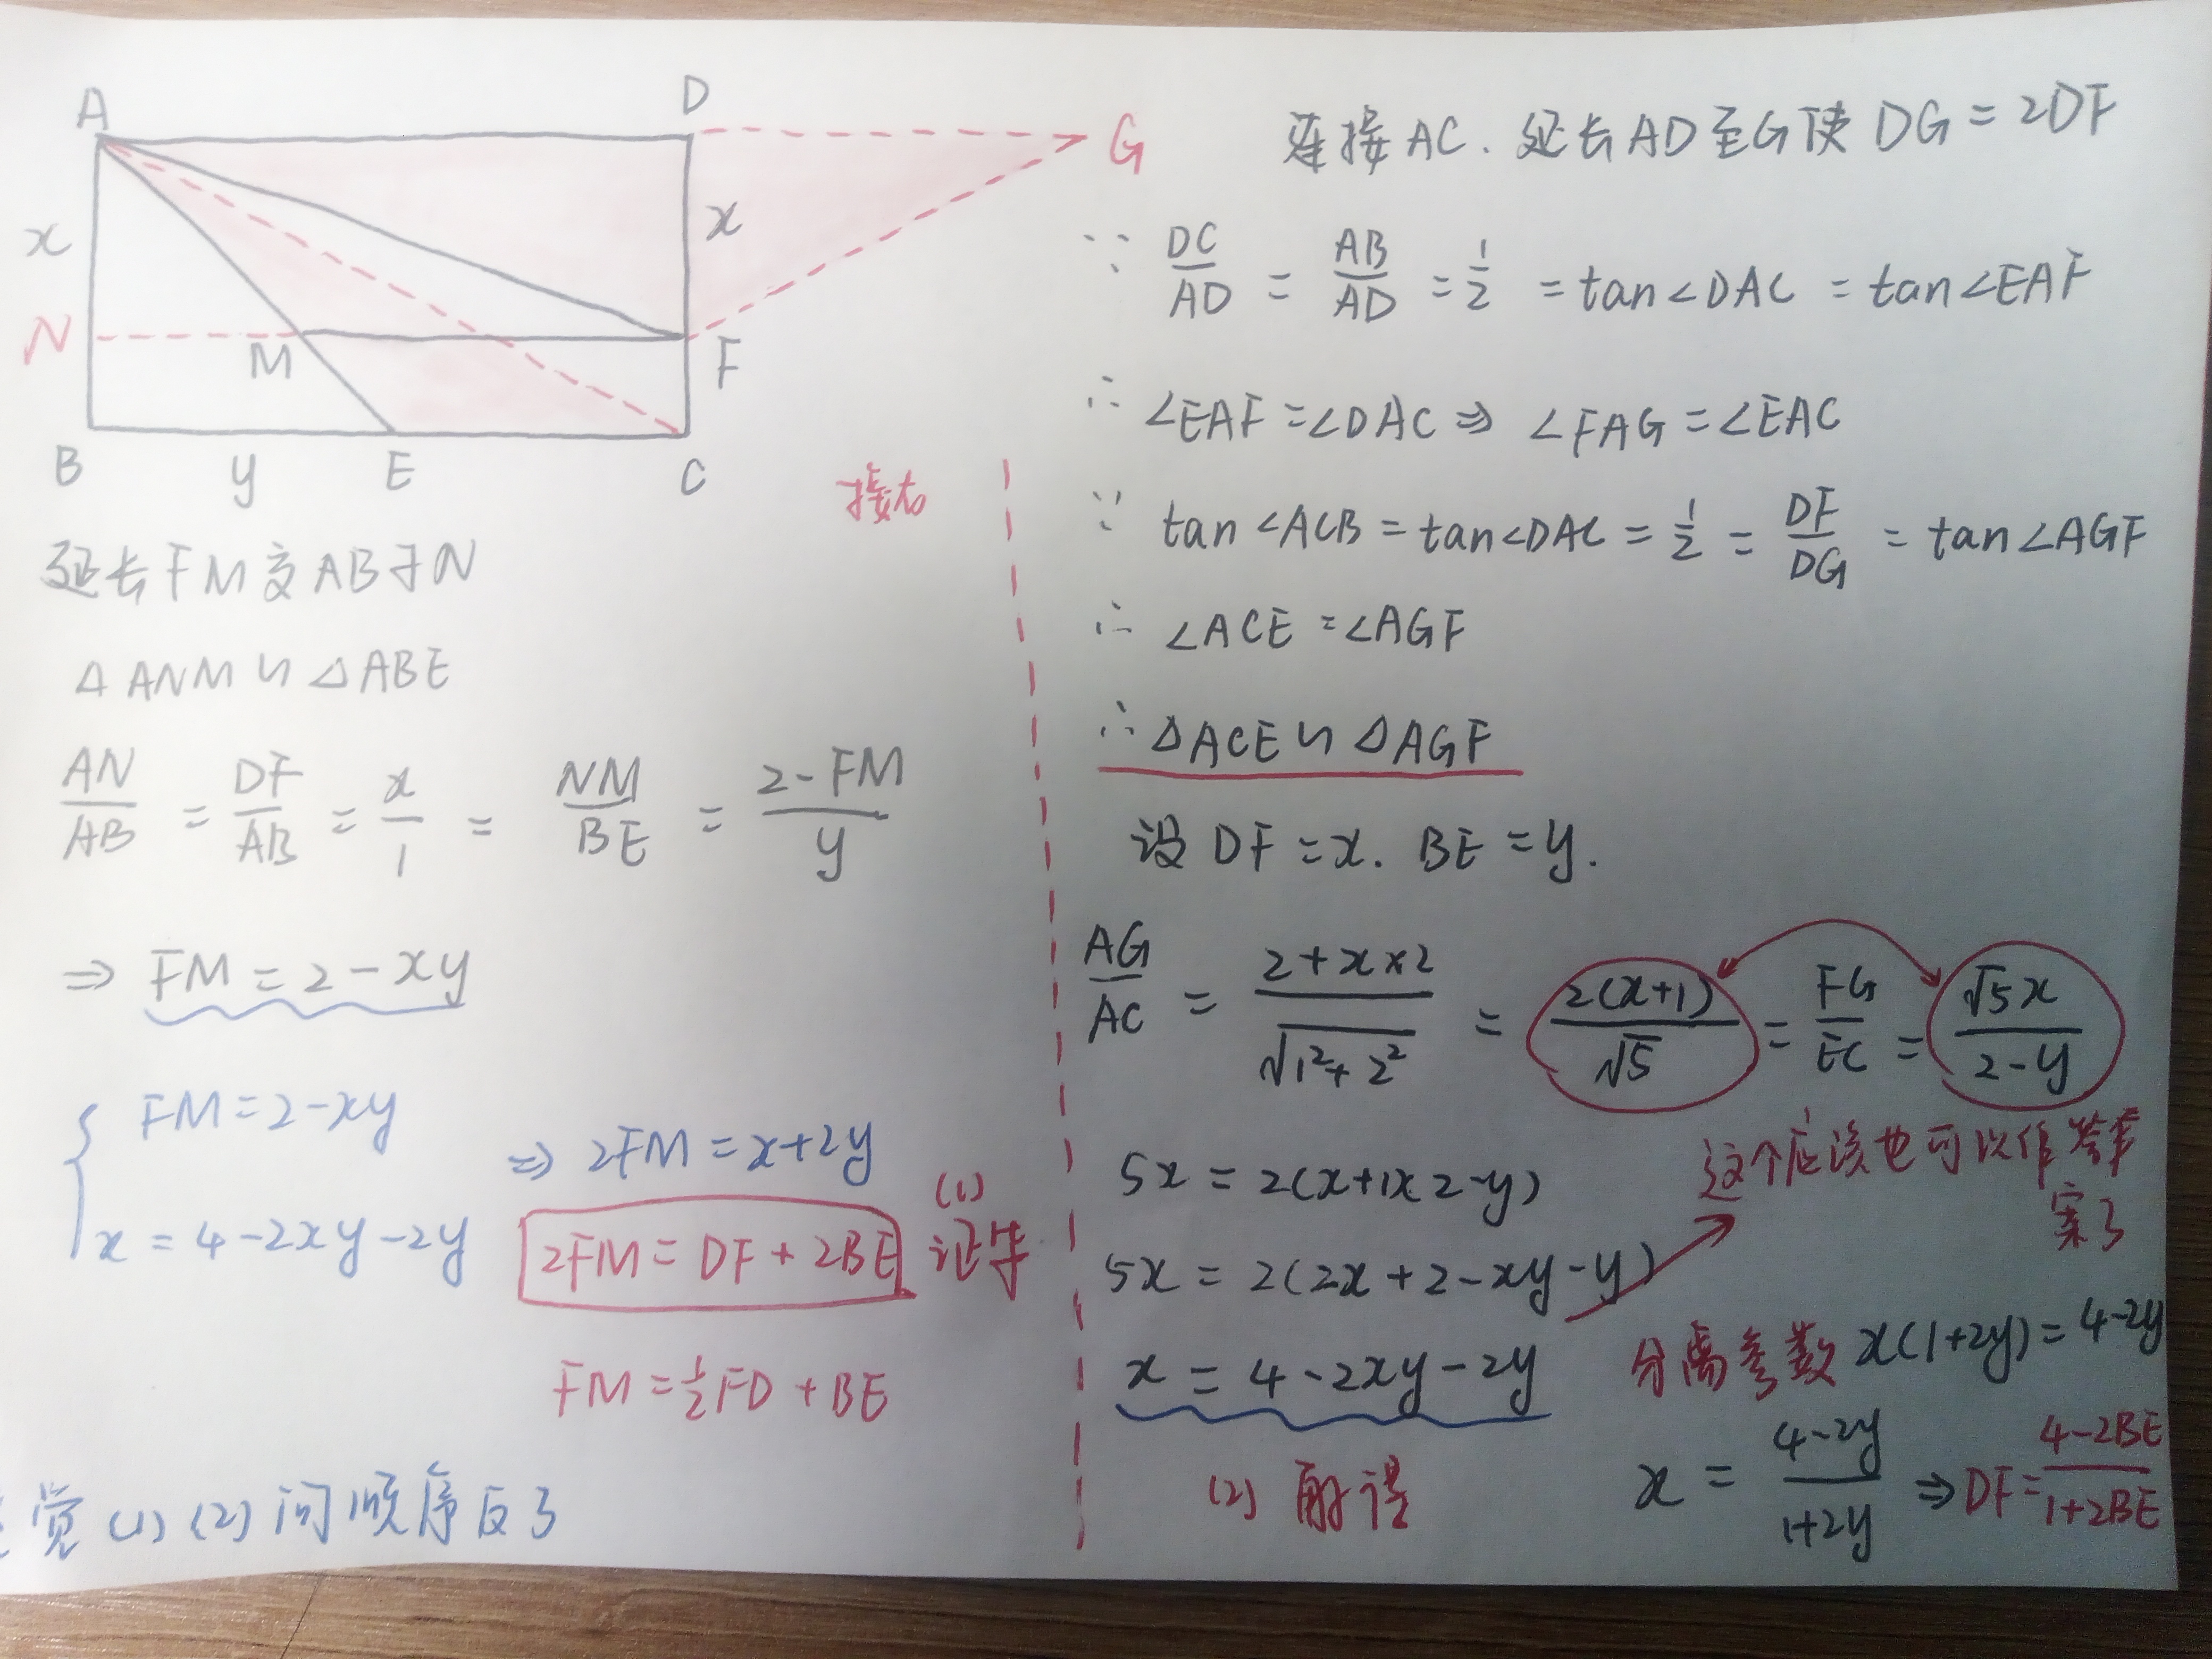 A
D
G
x
x
N
M
F
B
y
E
C
接右
延长FM交AB于N
△ANM∽△ABE
AN/AB = DF/AB = x/1 = NM/BE = 2-FM/y
⇒ FM = 2-xy
{ FM = 2-xy
x = 4-2xy-2y
⇒ 2FM = x+2y
2FM = DF + 2BE
(1)
证毕
FM = 1/2 FD + BE
觉(1)(2)问顺序反了
连接AC. 延长AD至G使DG = 2DF
∵ DC/AD = AB/AD = 1/2 = tan∠DAC = tan∠EAF
∴ ∠EAF = ∠DAC ⇒ ∠FAG = ∠EAC
∵ tan∠ACB = tan∠DAC = 1/2 = DF/DG = tan∠AGF
∴ ∠ACE = ∠AGF
∴ △ACE∽△AGF
设DF = x. BE = y.
AG/AC = 2+x×2/√1²+2² = 2(x+1)/√5 = FG/EC = √5x/2-y
5x = 2(x+1)(2-y)
5x = 2(2x+2-xy-y)
x = 4-2xy-2y
这个应该也可以作答
案了
分离参数 x(1+2y) = 4-2y
x = 4-2y/1+2y ⇒ DF = 4-2BE/1+2BE
(2)